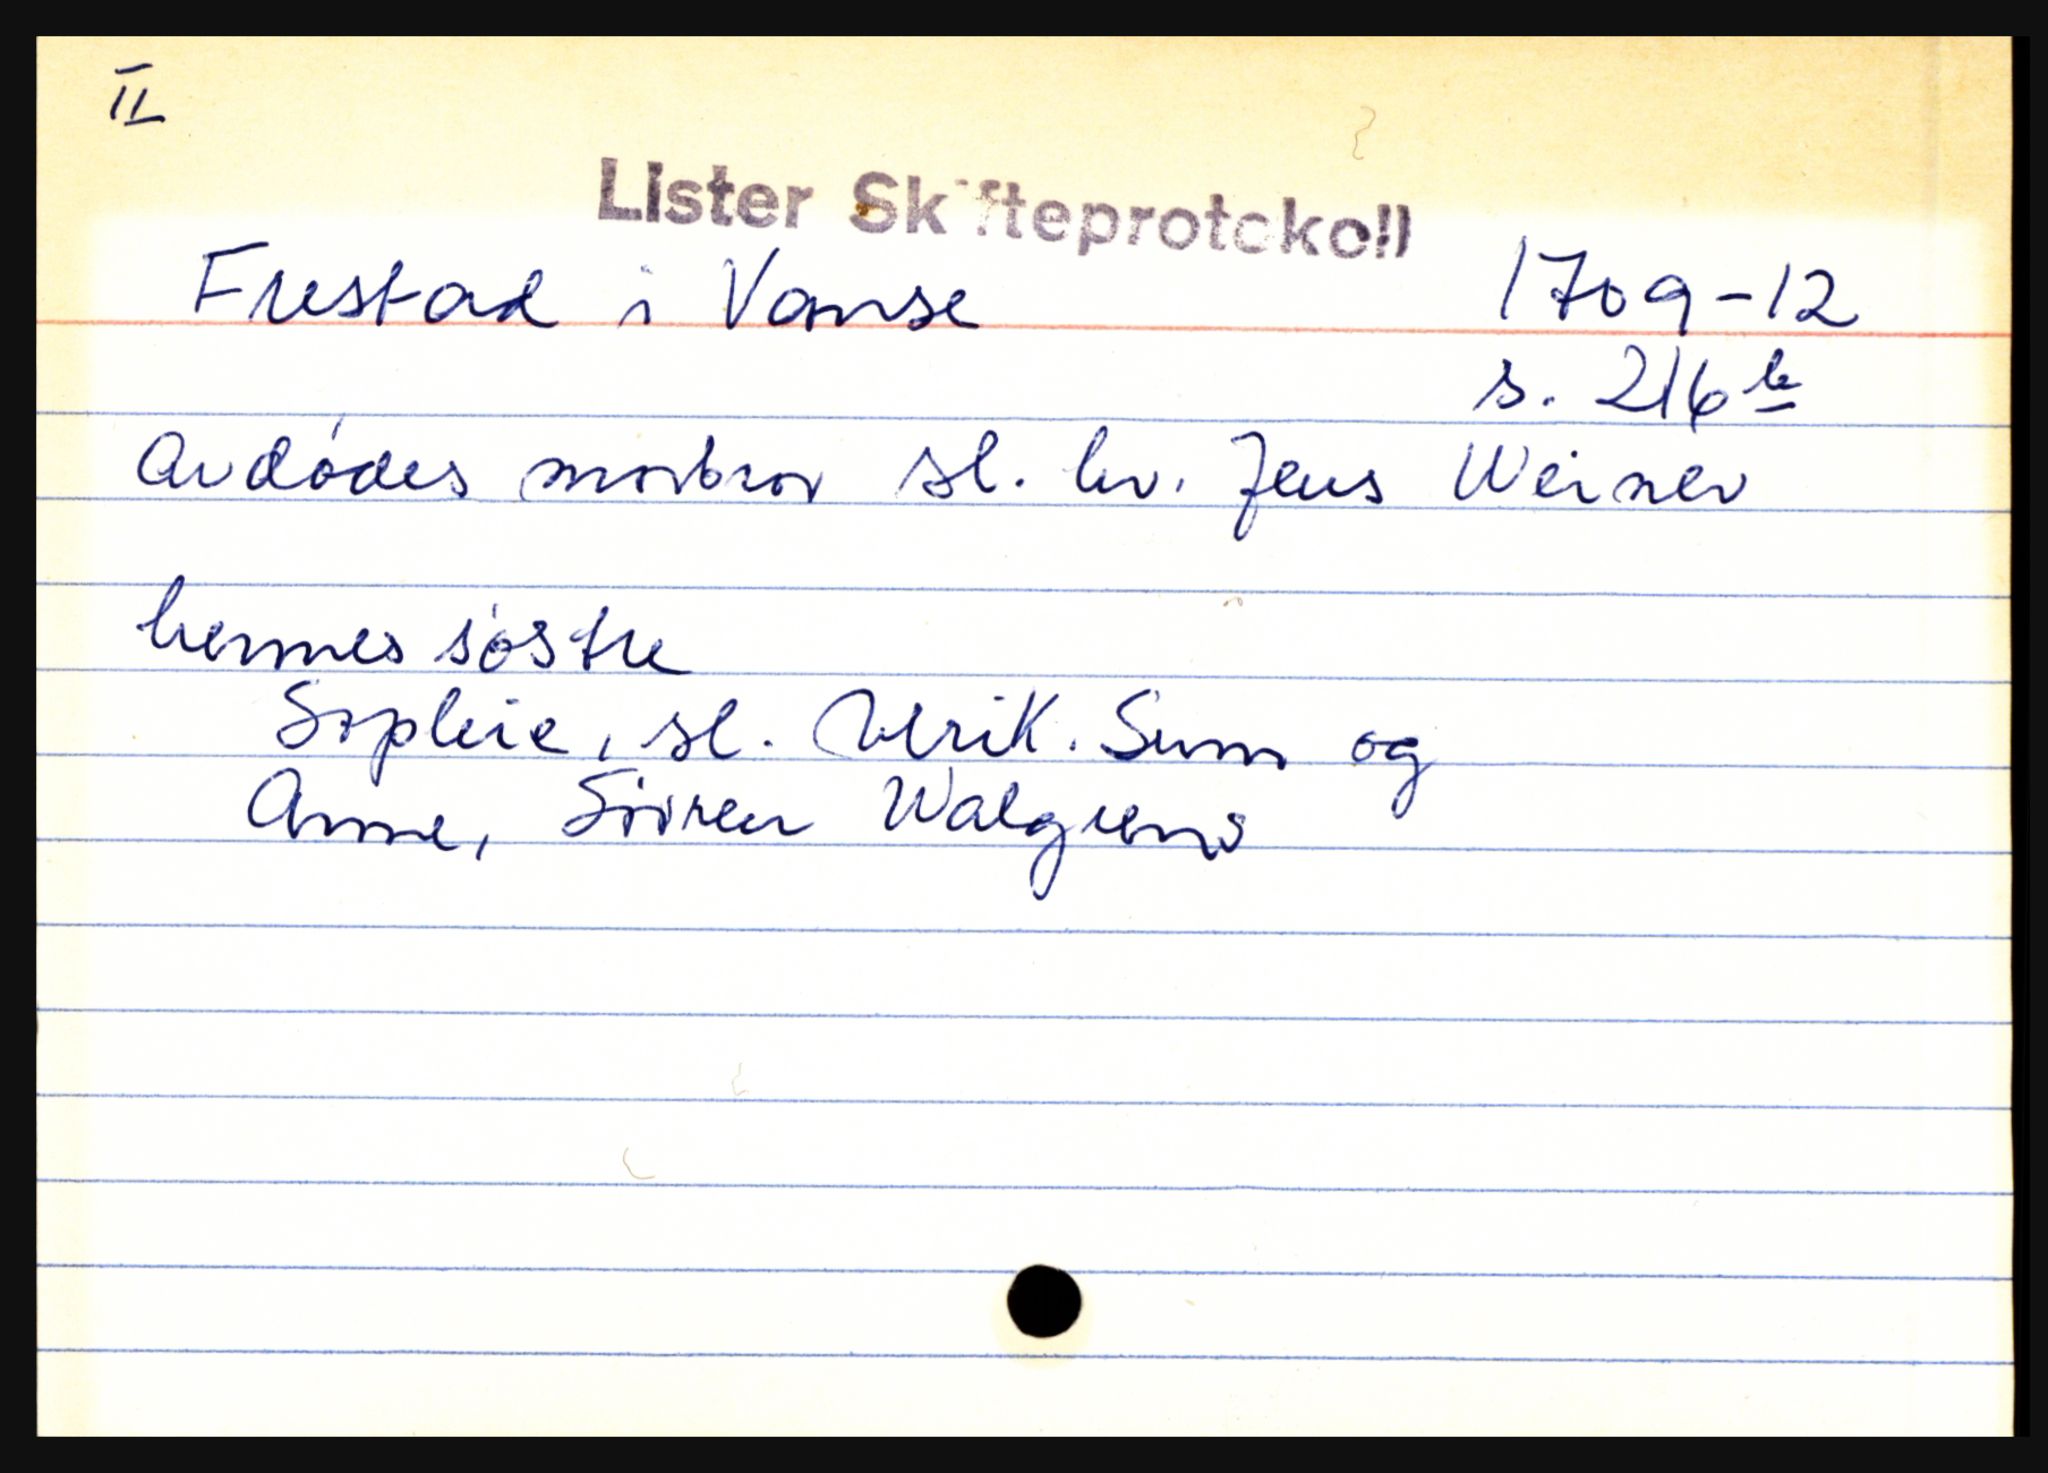 II
Lister Skifteprotokoll
Frestad i Vanse 1709-12
s. 216 b
Avdødes morbror sl. hr. Jens Weiner
hennes søstre
Sophie, sl. Ulrik. Sum og
Anne, Søvren Walgrens